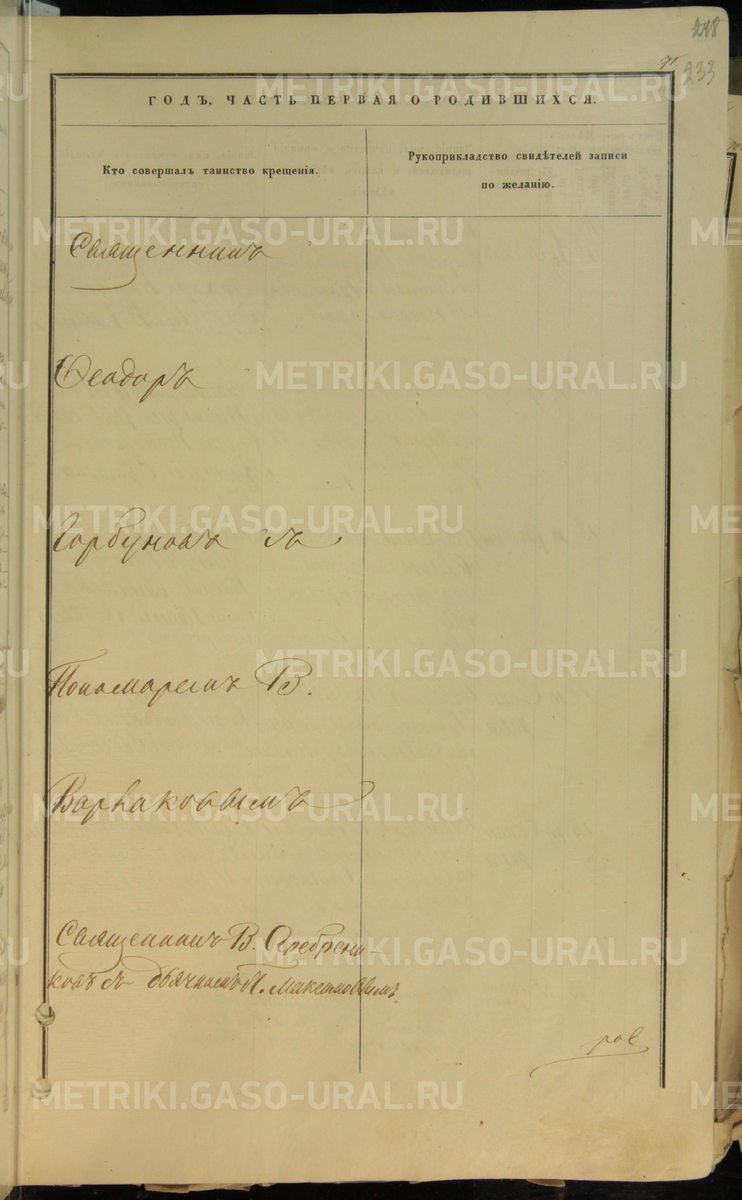 248
233
ГОДЪ, ЧАСТЬ ПЕРВАЯ О РОДИВШИХСЯ.
Кто совершалъ таинство крещенія.
Рукоприкладство свидѣтелей записи
по желанію.
Священникъ
Ѳеодоръ
Горбуновъ съ
Пономаремъ В.
Варнаковымъ
Священникъ В. Серебрени-
ковъ съ дьячкомъ П. Максимовымъ
METRIKI.GASO-URAL.RU